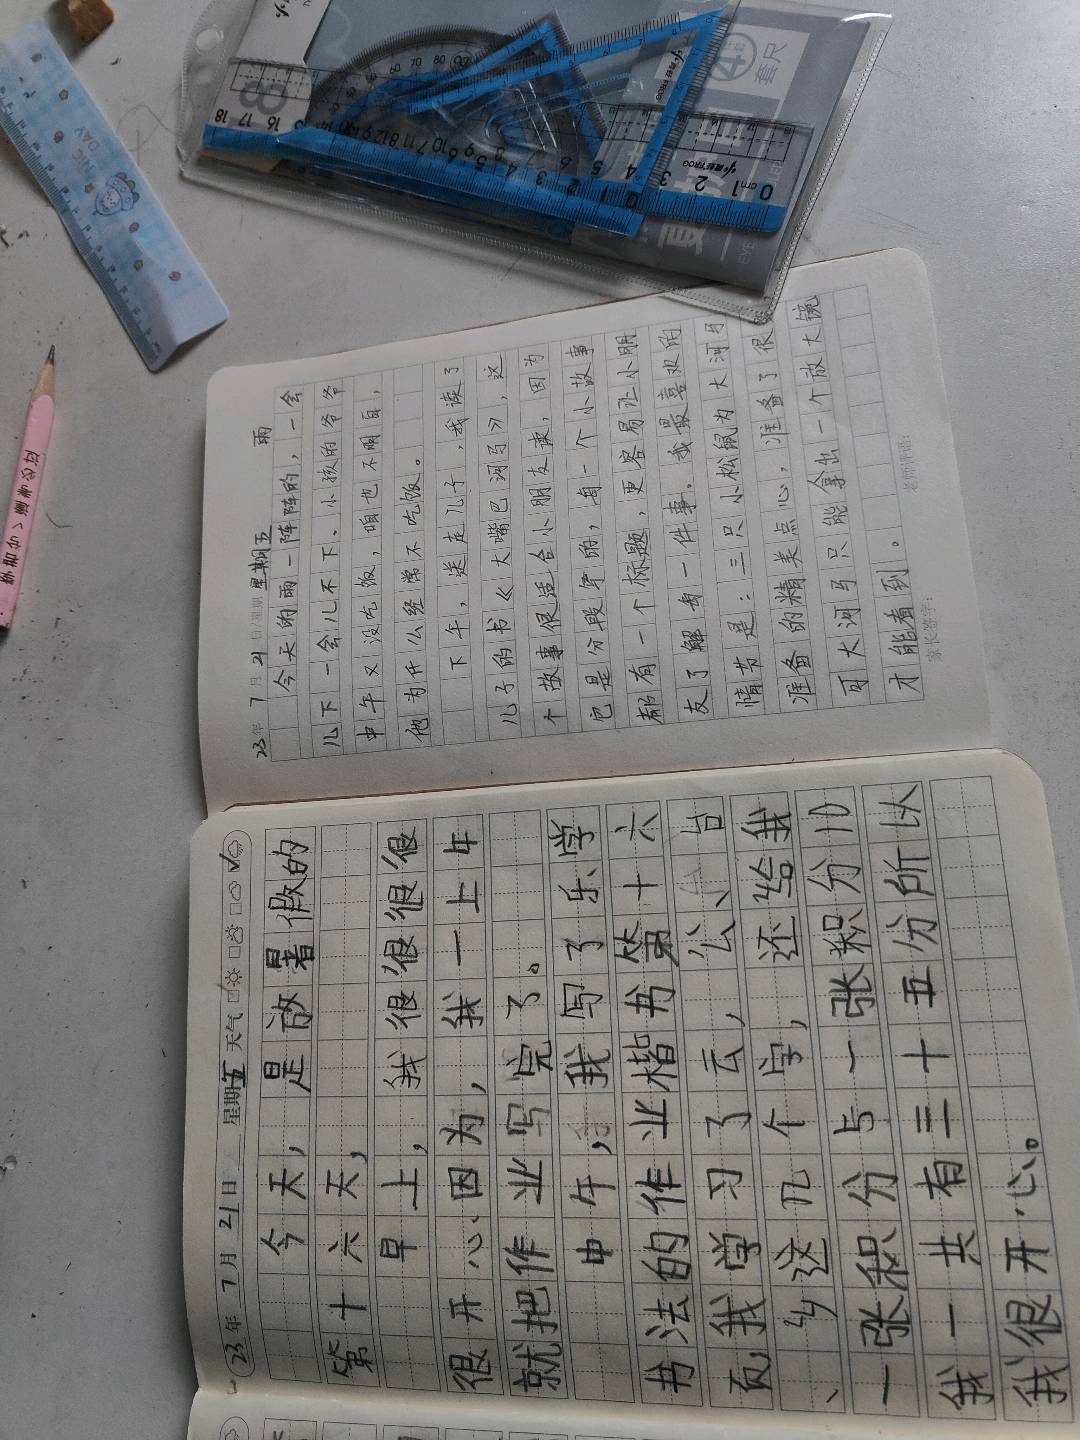 23年 7月 21日 星期五 天气
今天,是放暑假的
第十六天,
早上,我很很很很
很开心因为,我一上午
就把作业写完了。
中午,我写了乐学
书法的作业楷书第十六
页,我学习了云,公、台
、乡这几个字,还给我
一张积分与一张积分加
我一共有三十五份所以
我很开心。
23年 7月 21日/星期 星期五 雨
今天的雨一阵阵的,一会
儿下一会儿不下。小孩的爷爷
中午又没吃饭,咱也不明白,
他为什么经常不吃饭。
下午,送走儿子,我读了
儿子的书《大嘴巴河马》,这
个故事很适合小朋友读,因为
它是分段学的,每一个小故事
都有一个标题,更容易让小朋
友了解每一件事。我最喜欢的
情节是:三只小松鼠为大河马
准备的精美点心,准备了很
可大河马只能拿出一个放大镜
才能看到。
家长签字: 老师评语:
PICNIC DAY
套尺
0cm1 2 3 4 5 6 7 8 9 10 11 12 13 14 15 16 17 18